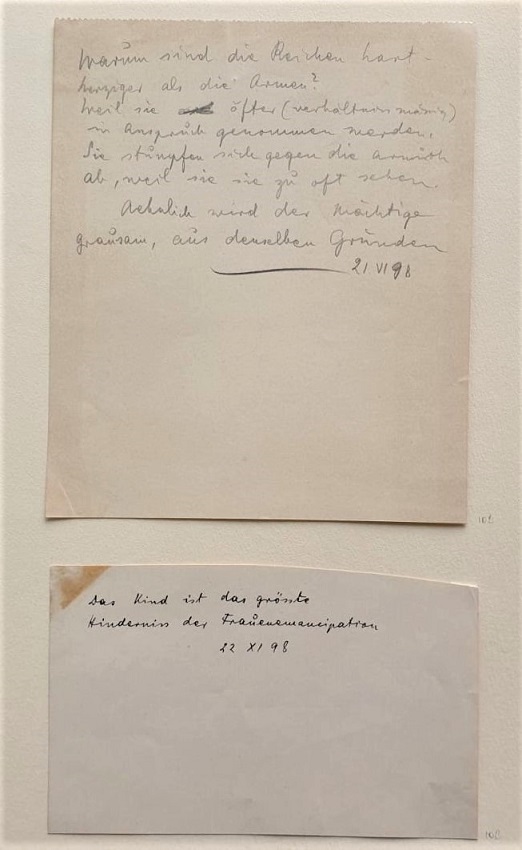 Warum sind die Reichen hart-
herziger als die Armen?
Weil sie öfter (verhältnismässig)
in Anspruch genommen werden.
Sie stumpfen sich gegen die Armuth
ab, weil sie sie zu oft sehen.
Aehnlich wird der Mächtige
grausam, aus denselben Gründen
21 VI 98
102
Das Kind ist das grösste
Hinderniss der Frauenemancipation
22 XI 98
103